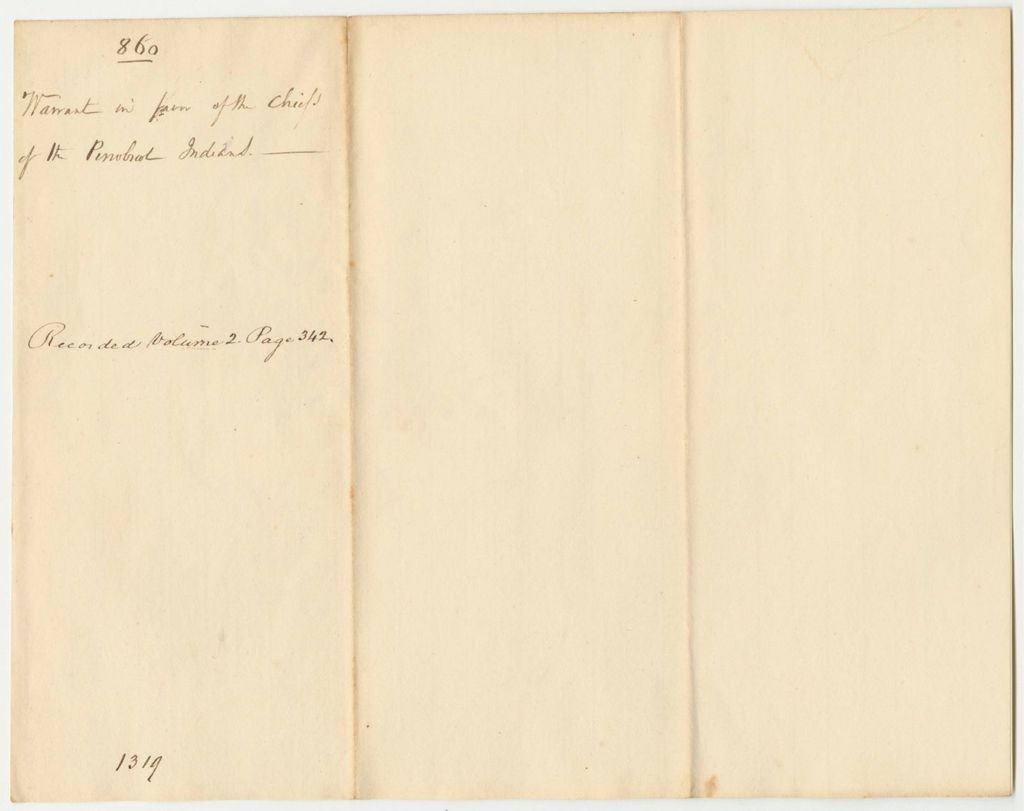 860
Warrant in favor of the Chiefs
of the Penobscot Indians.
Recorded Volume 2. Page 342.
1319